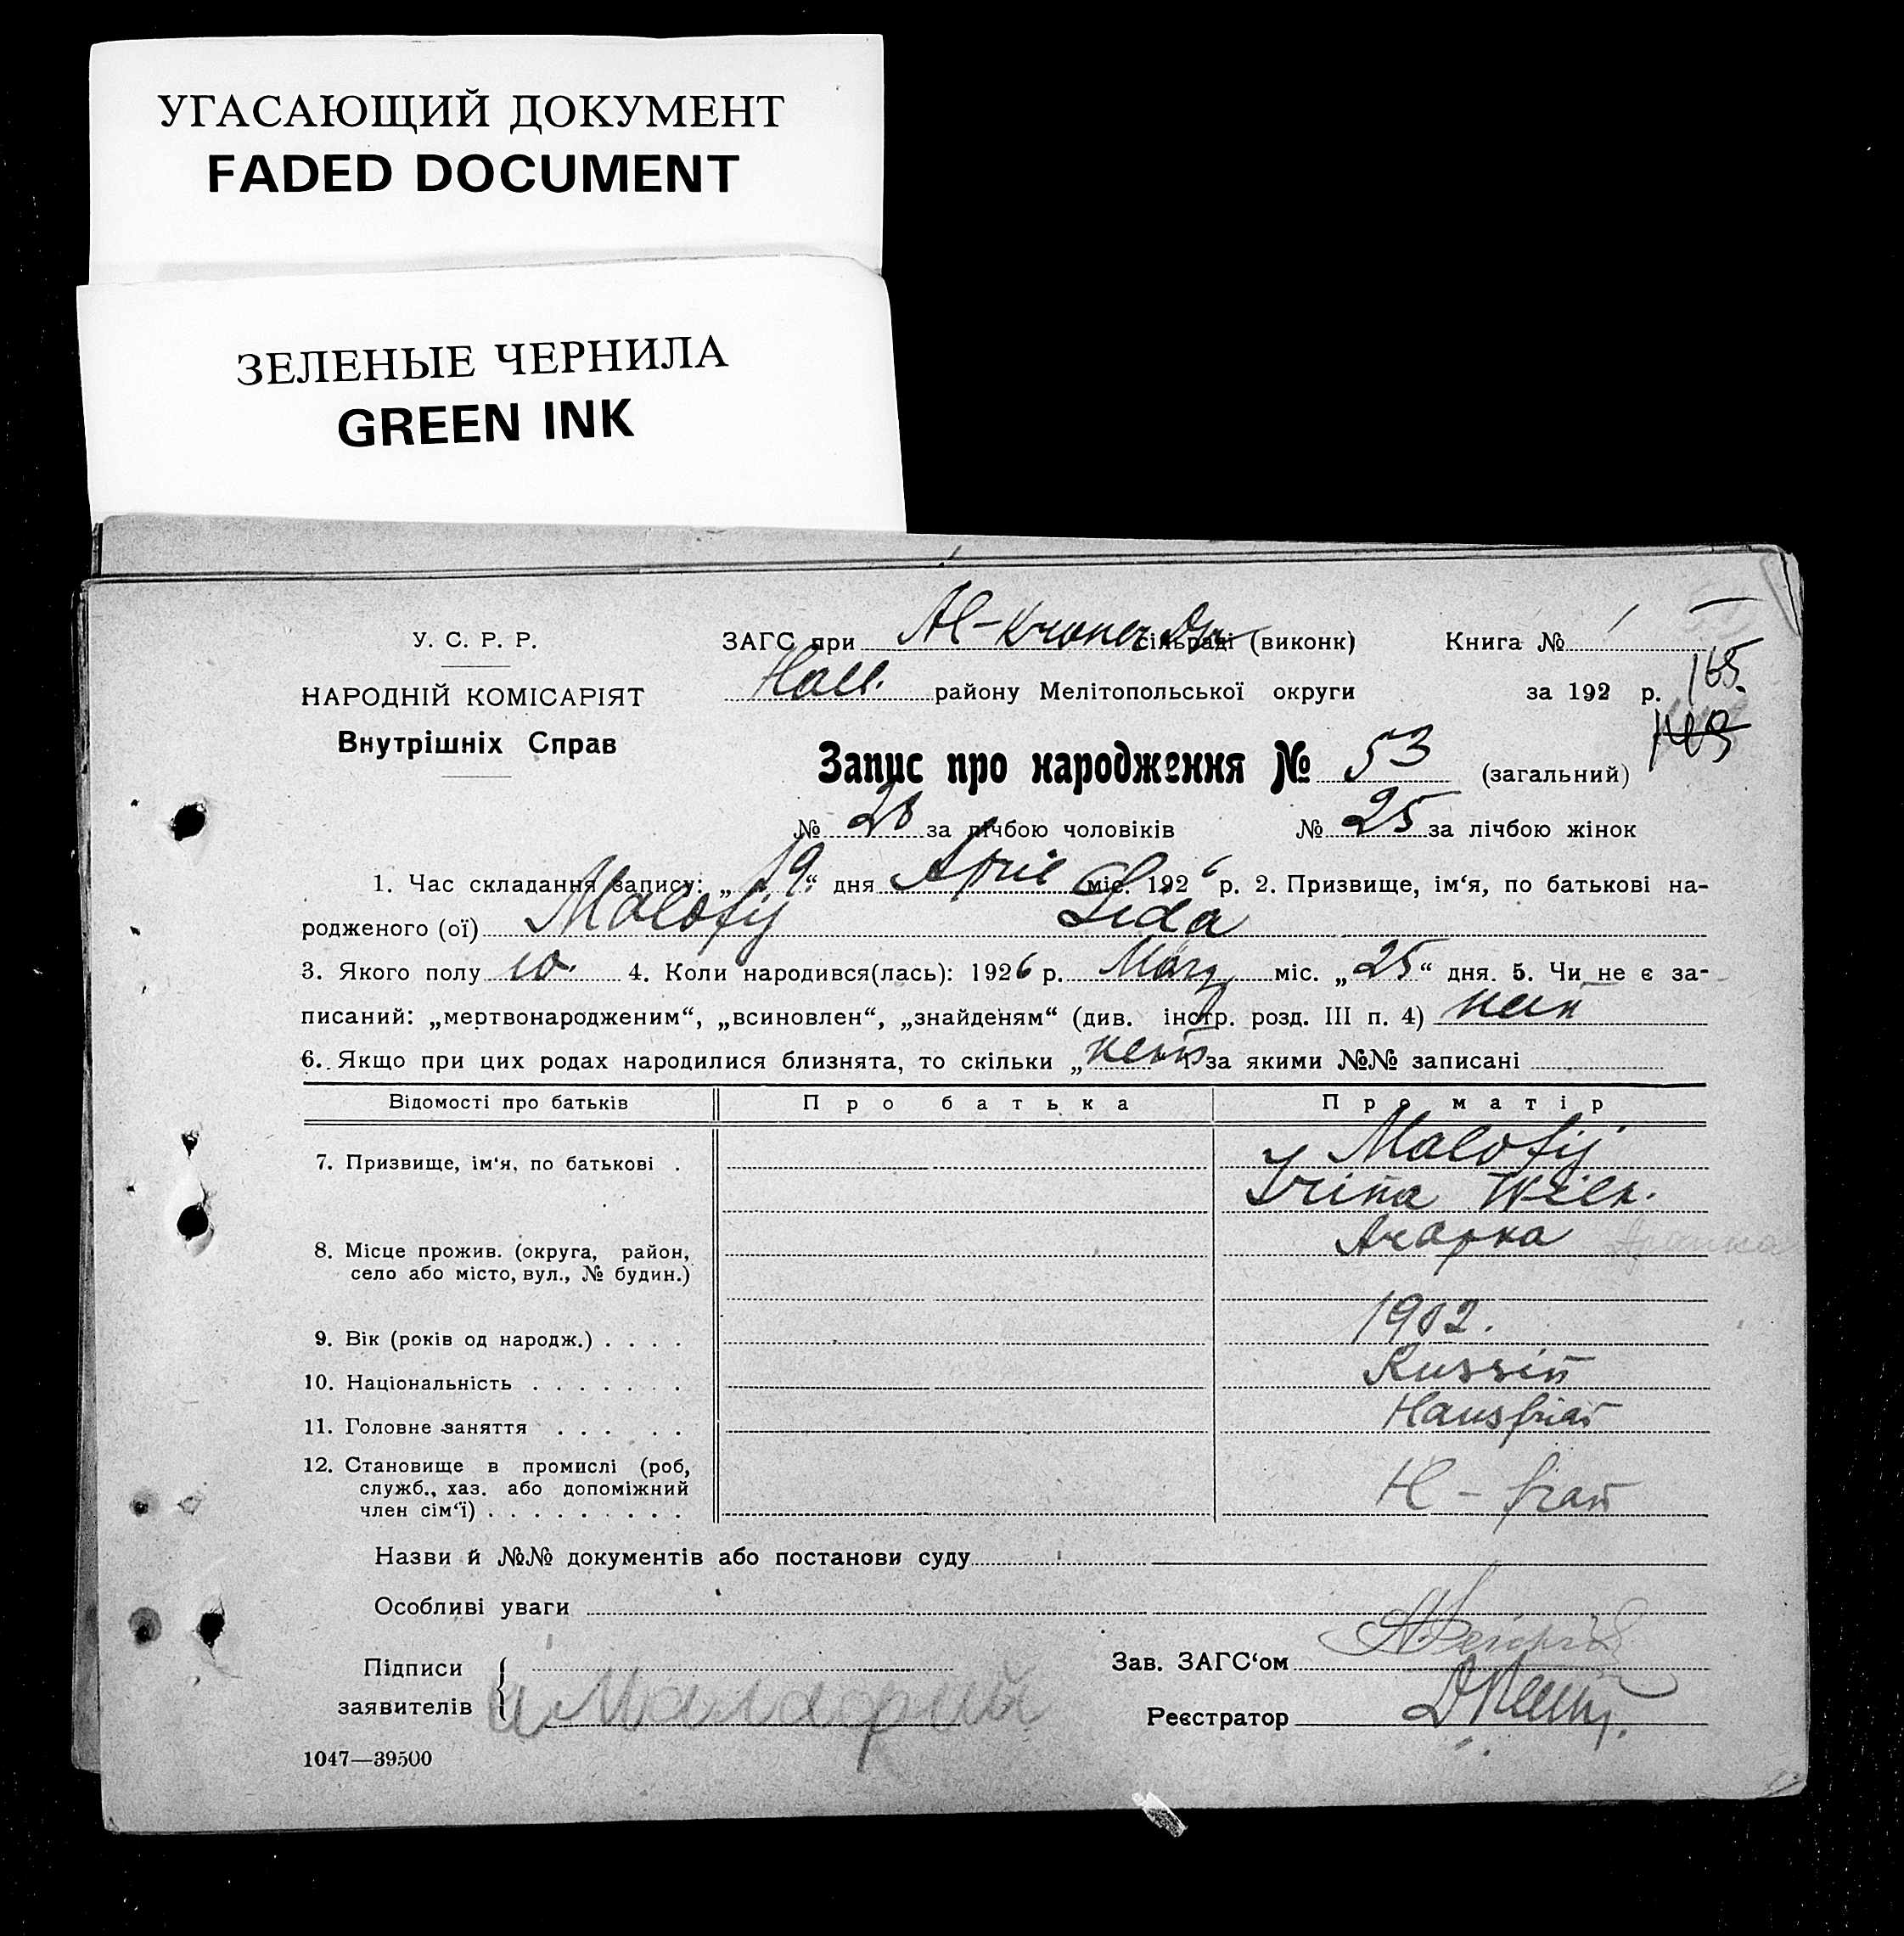 УГАСАЮЩИЙ ДОКУМЕНТ
FADED DOCUMENT
ЗЕЛЕНЫЕ ЧЕРНИЛА
GREEN INK
У. С. Р. Р.
НАРОДНІЙ КОМІСАРІЯТ
Внутрішніх Справ
ЗАГС при Al-Kroner сільраді (виконк)
Книга №
Hall. району Мелітопольської округи
за 192 р.
165.
Запис про народження № 53 (загальний)
№ 28 за лічбою чоловіків № 25 за лічбою жінок
1. Час складання запису: „19“ дня April міс. 1926 р. 2. Призвище, ім‘я, по батькові на-
родженого (ої) Malofij Lida
3. Якого полу w. 4. Коли народився(лась): 1926 р. März міс. „25“ дня. 5. Чи не є за-
писаний: „мертвонародженим“, „всиновлен“, „знайденям“ (див. інстр. розд. III п. 4) nein
6. Якщо при цих родах народилися близнята, то скільки „nein і за якими №№ записані
Відомості про батьків Про батька Про матір
7. Призвище, ім‘я, по батькові . Malofij
Irina Wilh.
8. Місце прожив. (округа, район,
село або місто, вул., № будин.)
9. Вік (років од народж.) . . . . 1902.
10. Національність . . . . . . . Russin
11. Головне заняття . . . . . Hausfrau
12. Становище в промислі (роб,
служб., хаз. або допоміжний
член сім‘ї) . . . . . . . . . H - frau
Назви й №№ документів або постанови суду
Особливі уваги
Підписи
заявителів
Малафий
Зав. ЗАГС‘ом
Реєстратор
1047—39500